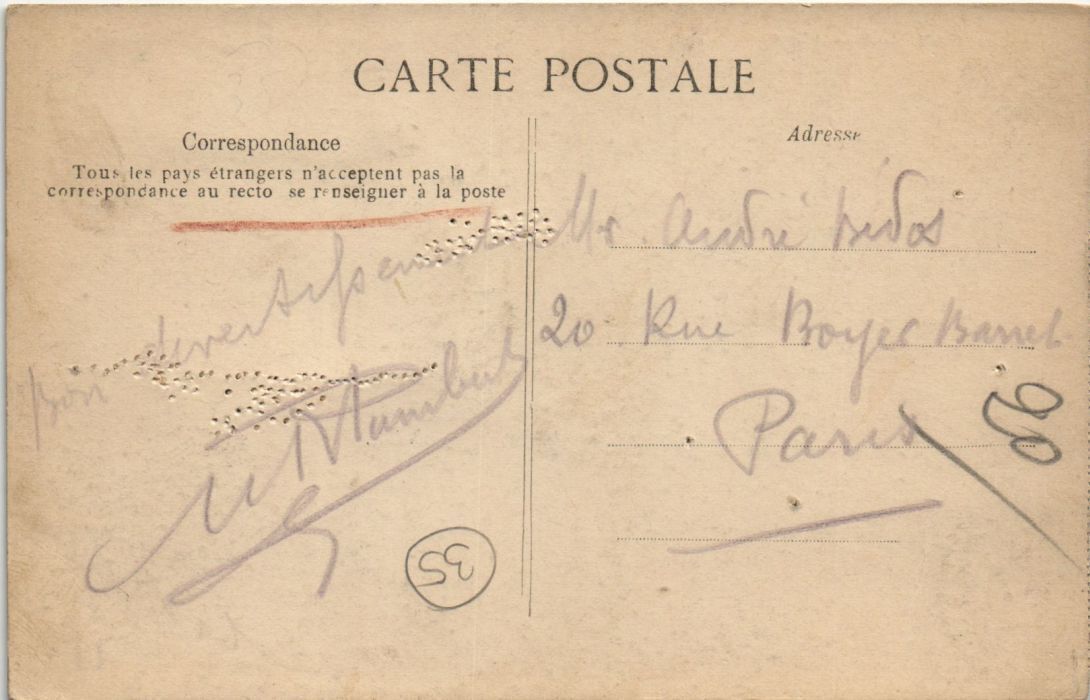 CARTE POSTALE
Correspondance
Tous les pays étrangers n'acceptent pas la
correspondance au recto se renseigner à la poste
Bon divertissement
Adresse
Mr André Bedos
20 Rue Boyer Barret
Paris
35